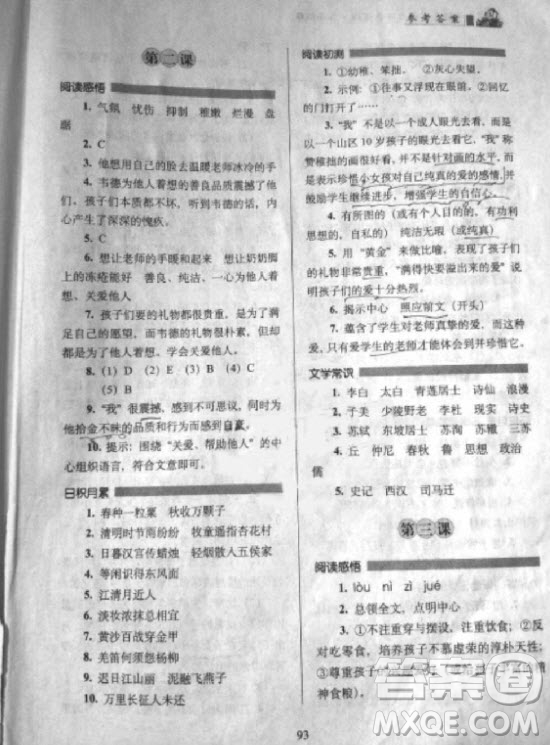 参考答案
第二课
阅读感悟
1. 气氛 忧伤 抑制 稚嫩 烂漫 盘踞
2. C
3. 他想用自己的脸去温暖老师冰冷的手
4. 韦德为他人着想的善良品质震撼了他们。孩子们本质都不坏，听到韦德的话，内心产生了深深的愧疚。
5. C
6. 想让老师的手暖和起来 想让奶奶脚上的冻疮能好 善良、纯洁、一心只为他人着想、关爱他人
7. 孩子们要的礼物都很贵重，是为了满足自己的愿望，而韦德的礼物很朴素，但却是为了他人。
8. (1) D (2) E (3) B (4) C
(5) B
9. “我”很震撼，感到不可思议，同时为他拾金不昧的品质和行为而感到自豪。
10. 提示：围绕“关爱、帮助他人”的中心组织语言，符合文意即可。
日积月累
1. 春种一粒粟 秋收万颗子
2. 清明时节雨纷纷 牧童遥指杏花村
3. 日暮汉宫传蜡烛 轻烟散入五侯家
4. 等闲识得东风面
5. 江清月近人
6. 淡妆浓抹总相宜
7. 黄沙百战穿金甲
8. 羌笛何须怨杨柳
9. 迟日江山丽 泥融飞燕子
10. 万里长征人未还
阅读初测
1. ①幼稚、笨拙。②灰心失望。
2. 示例：①往事又浮现在眼前。②回忆的门打开了……
3. “我”不是以一个成人眼光去看，而是以一个山区10岁孩子的眼光去看，“我”称赞稚拙的画很好看，并不是针对画的水平，而是表示珍惜小女孩对自己纯真的爱的感情，并鼓励学生继续进步，增强学生的自信心。
4. 有所图的（或有个人目的的，有功利思想的） 纯洁无瑕（或纯真）
5. 用“黄金”来做比喻，表现了孩子们的礼物非常贵重，“满得快要溢出来的爱”说明孩子们的爱十分热烈。
6. 揭示中心 照应前文（开头）
7. 蕴含了学生对老师真挚的爱，而且，只有爱学生的老师才能体会到并珍惜它。
文学常识
1. 李白 太白 青莲居士 诗仙 浪漫
2. 子美 少陵野老 李杜 现实 诗史
3. 苏轼 东坡居士 苏洵 苏辙
4. 丘 仲尼 春秋 鲁 思想 政治 儒
5. 史记 西汉 司马迁
第三课
阅读感悟
1. lòu nì zì jué
2. 总领全文，点明中心
3. ①不注重穿与摆设，注重饮食；②反对吃零食，培养孩子不慕虚荣的淳朴天性；③尊重孩子
神食粮）。
93
答案圈
MXQE.COM